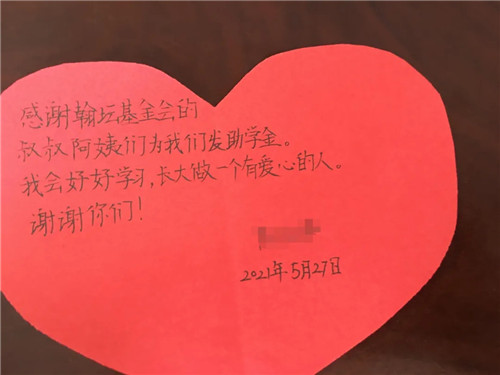 感谢翰坛基金会的
叔叔阿姨们为我们发助学金。
我会好好学习,长大做一个有爱心的人。
谢谢你们!
2021年5月27日